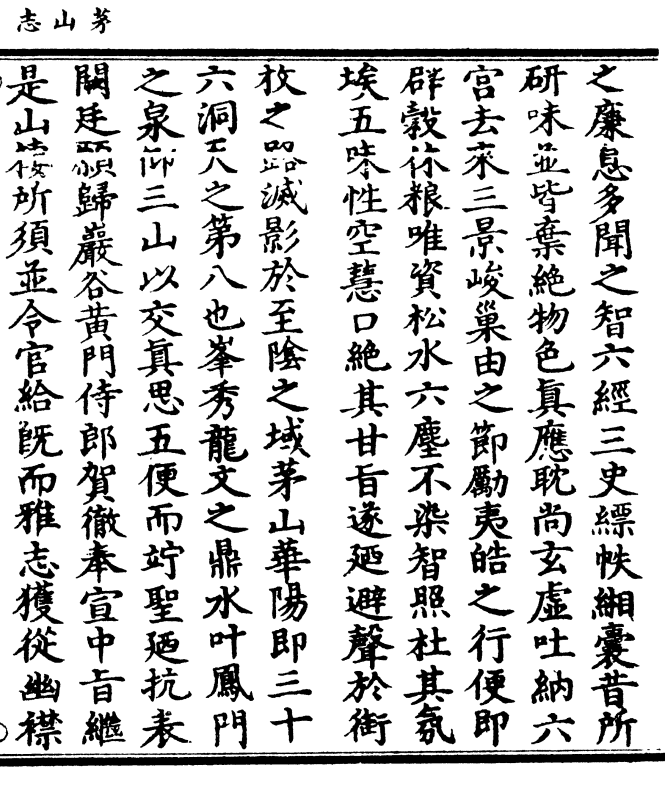 茅山志
之廉息多聞之智六經三史縹帙緗囊昔所
研味並皆棄絶物色真應耽尚玄虛吐納六
宮去來三景峻巢由之節勵夷皓之行便即
群穀休粮唯資松水六塵不染智照杜其氛
埃五味性空慧口絶其甘旨遂廼避聲於街
枚之路滅影於至陰之域茅山華陽即三十
六洞天之第八也峯秀龍文之鼎水叶鳳門
之泉仰三山以交真思五便而竚聖廼抗表
闕廷願歸巖谷黃門侍郎賀徹奉宣中旨繼
是山棲所須並令官給旣而雅志獲從幽襟